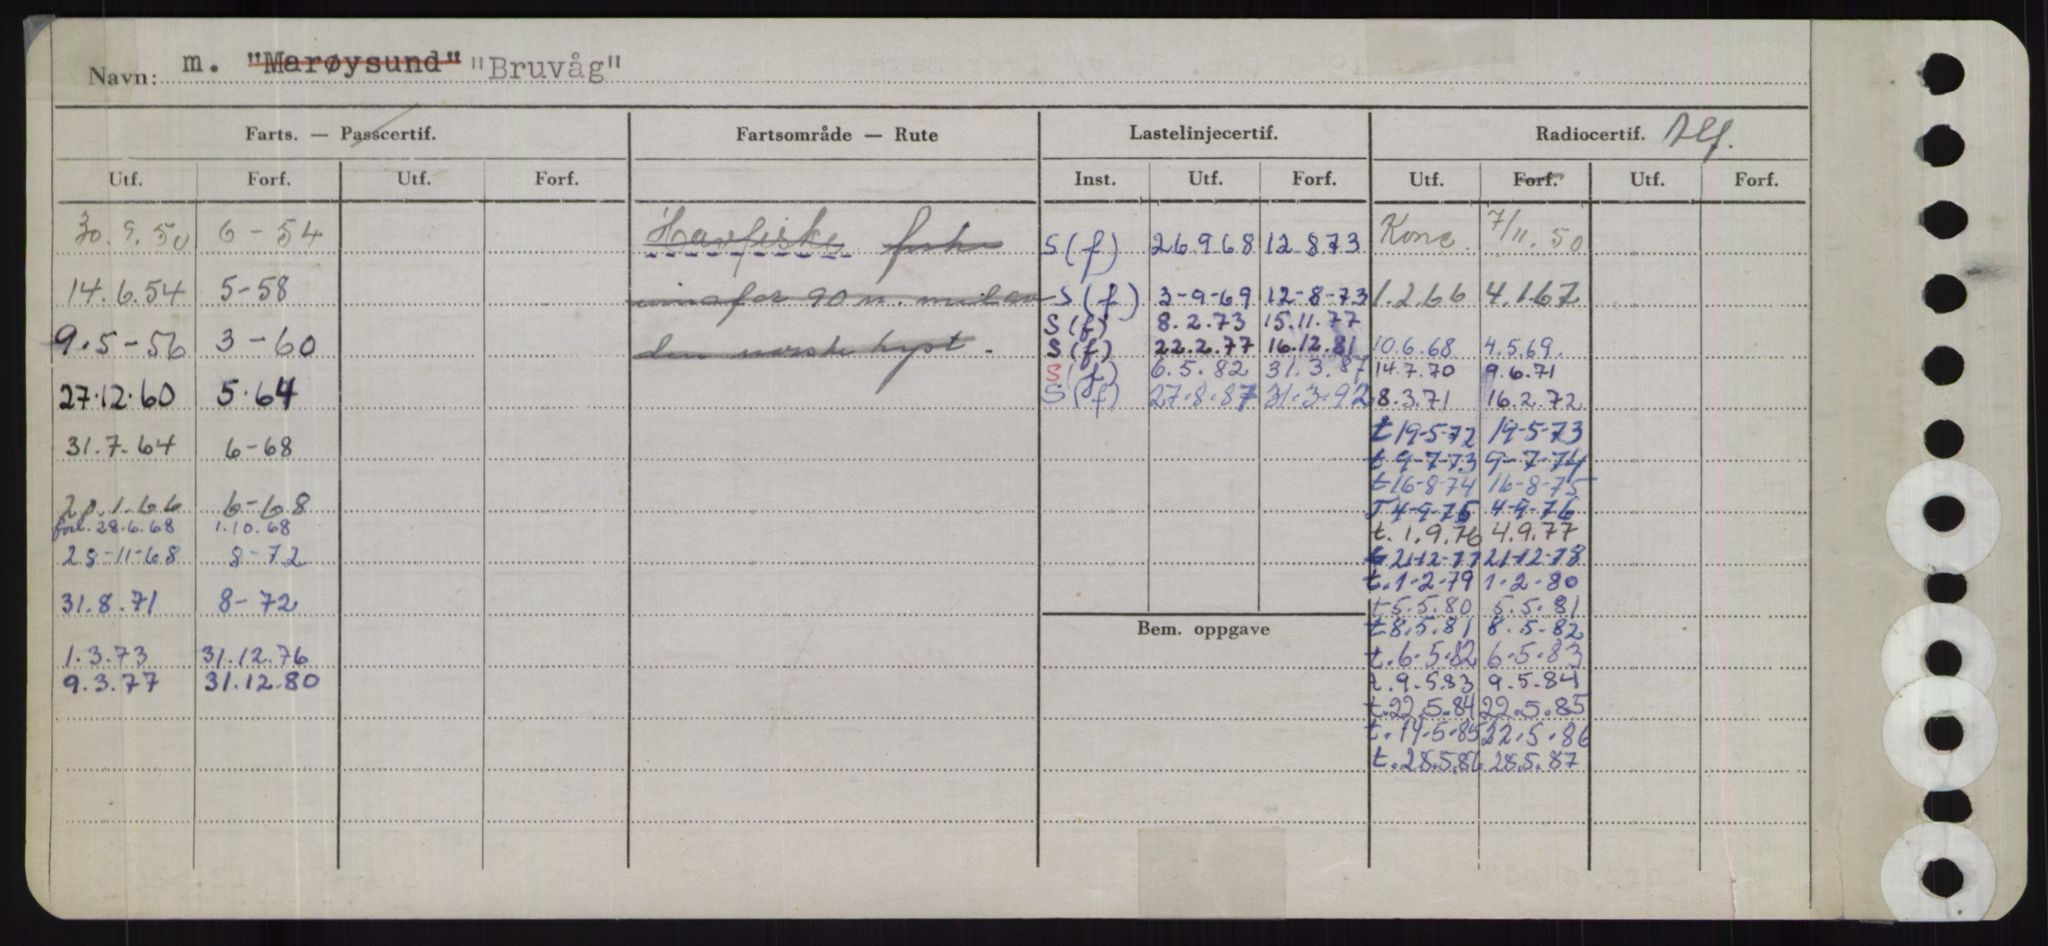 Navn: m. "Marøysund" "Bruvåg"
Farts. — Passcertif. Fartsområde — Rute Lastelinjecertif. Radiocertif. Tlf.
Utf. Forf. Utf. Forf. Inst. Utf. Forf. Utf. Forf. Utf. Forf.
30.9.50 6-54 Havfiske S(f) 26.9.68 12.8.73 Konc. 7/11.50
14.6.54 5-58 innafor 90 n. mil av S(f) 3-9-69 12-8-73 1.2.66 4.1.67
S(f) 8.2.73 15.11.77
9.5-56 3-60 den norske kyst. S(f) 22.2.77 16.12.81 10.6.68 4.5.69.
S(f) 6.5.82 31.3.87 14.7.70 9.6.71
27.12.60 5.64 S(f) 27.8.87 31.3.92 8.3.71 16.2.72
t 19-5-72 19-5-73
31.7.64 6-68
t 9-7-73 9-7-74
t 16-8-74 16-8-75
28.1.66 6-68 T 4-9-75 4-9-76
forl. 28.6.68 1.10.68 t. 1.9.76 4.9.77
28-11-68 8-72 t 21-12-77 21-12-78
t. 1-2-79 1-2-80
31.8.71 8-72 t 5.5.80 5.5.81
Bem. oppgave t 8.5.81 8.5-82
1.3.73 31.12.76 t. 6-5-82 6-5-83
9.3.77 31.12.80 t. 9.5.83 9.5.84
t. 22.5.84 22.5.85
t. 14-5-85 22.5.86
t. 28.5.86 28.5.87